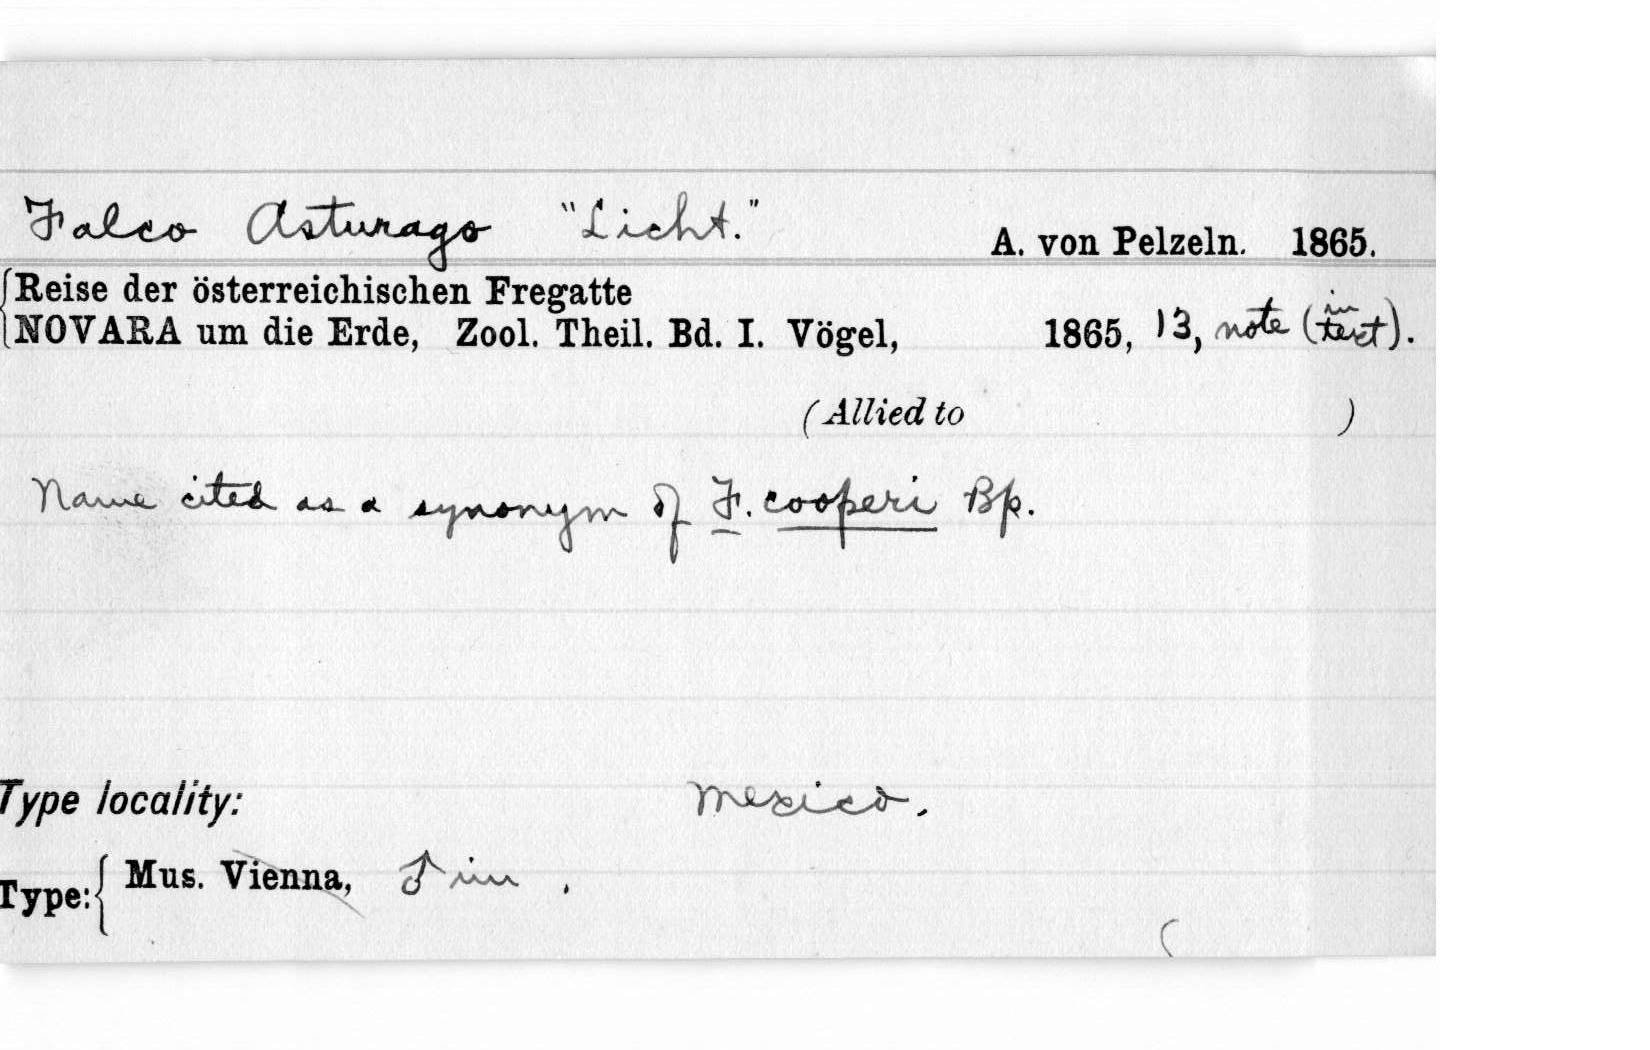 Falco Asturago "Licht."
A. von Pelzeln. 1865.
Reise der österreichischen Fregatte
NOVARA um die Erde, Zool. Theil. Bd. I. Vögel, 1865, 13, note (in text).
(Allied to )
Name cited as a synonym of F. cooperi Bp.
Type locality: Mexico.
Type: Mus. Vienna, ♂ im .